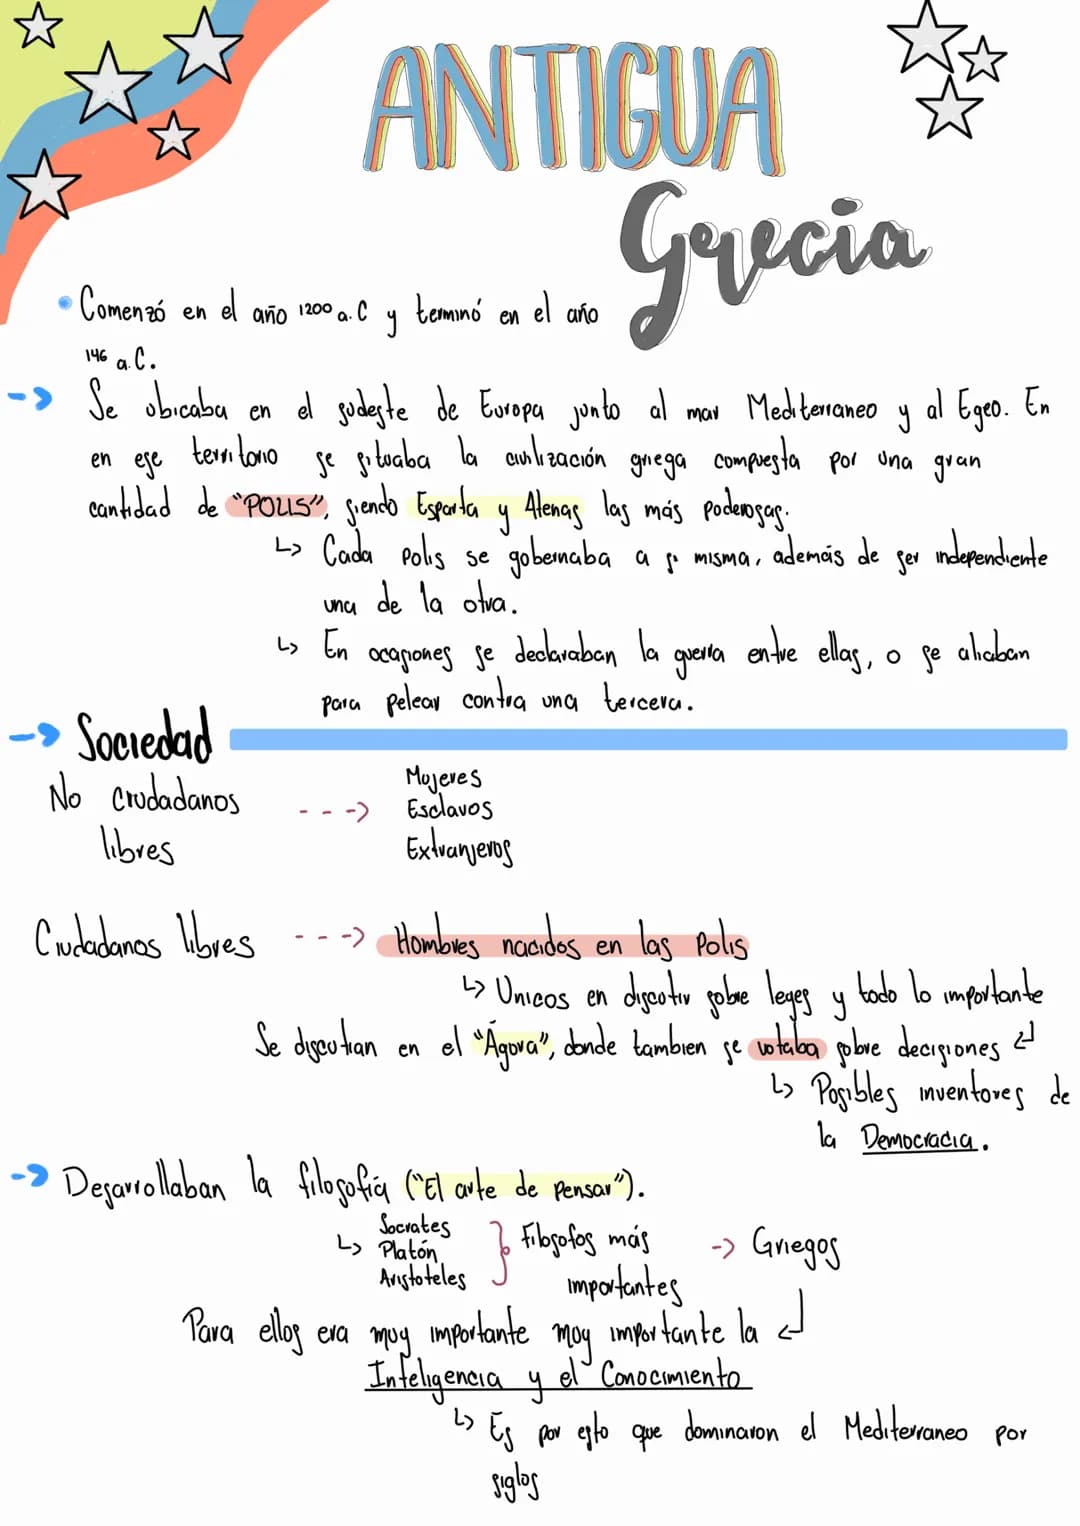 ANTIGUA
Grecia
• Comenzó en el año 1200 a.C y terminó en el año
146 a.C.
-> Se ubicaba en el sudeste de Europa junto al mar Mediterraneo y al Egeo. En
en ese territorio se situaba la civilización griega compuesta por una gran
cantidad de "POLIS", siendo Esparta y Atenas las más poderosas.
↳ Cada Polis se gobernaba a si misma, además de ser independiente
una de la otra.
↳ En ocasiones se declaraban la guerra entre ellas, o se aliaban
para pelear contra una tercera.
-> Sociedad
No ciudadanos ---> Mujeres
libres Esclavos
Extranjeros
Ciudadanos libres ---> Hombres nacidos en las Polis
↳ Unicos en discutir sobre leyes y todo lo importante
Se discutian en el "Ágora", donde tambien se votaba sobre decisiones ↲
↳ Posibles inventores de
la Democracia.
-> Desarrollaban la filosofía ("El arte de pensar").
↳ Socrates
Platón
Aristoteles } Filosofos más importantes -> Griegos
Para ellos era muy importante muy importante la ↲
Inteligencia y el Conocimiento
↳ Es por esto que dominaron el Mediterraneo por
siglos